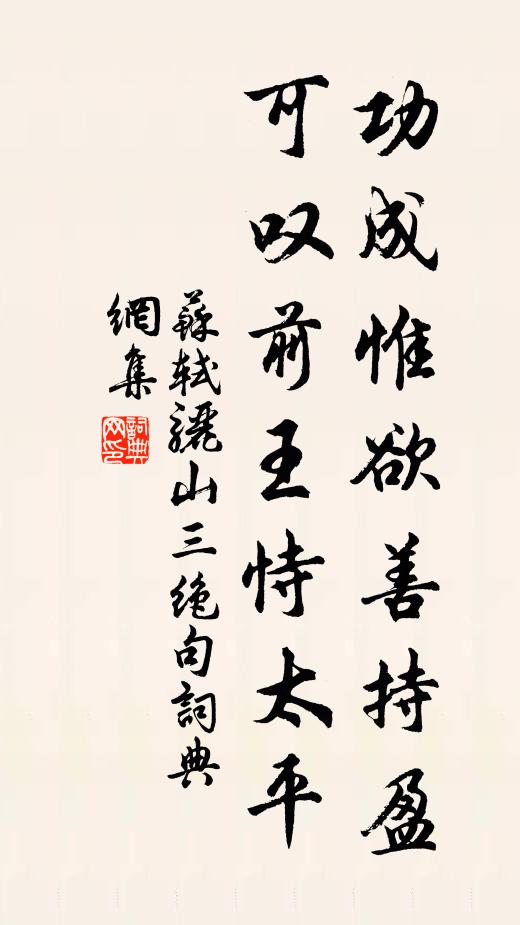 功成惟欲善持盈
可叹前王恃太平
蘇軾驪山三絶句詞典
網集
詞典網印